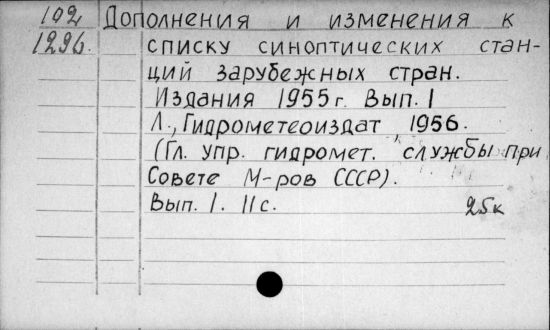 102 Дополнения и изменения к
1296. списку синоптических стан-
ций зарубежных стран.
Издания 1955 г. Вып. 1
Л., Гидрометеоиздат 1956.
(Гл. упр. гидромет. службы при
Совете М-ров СССР).
Вып. 1. 11 с. 25к